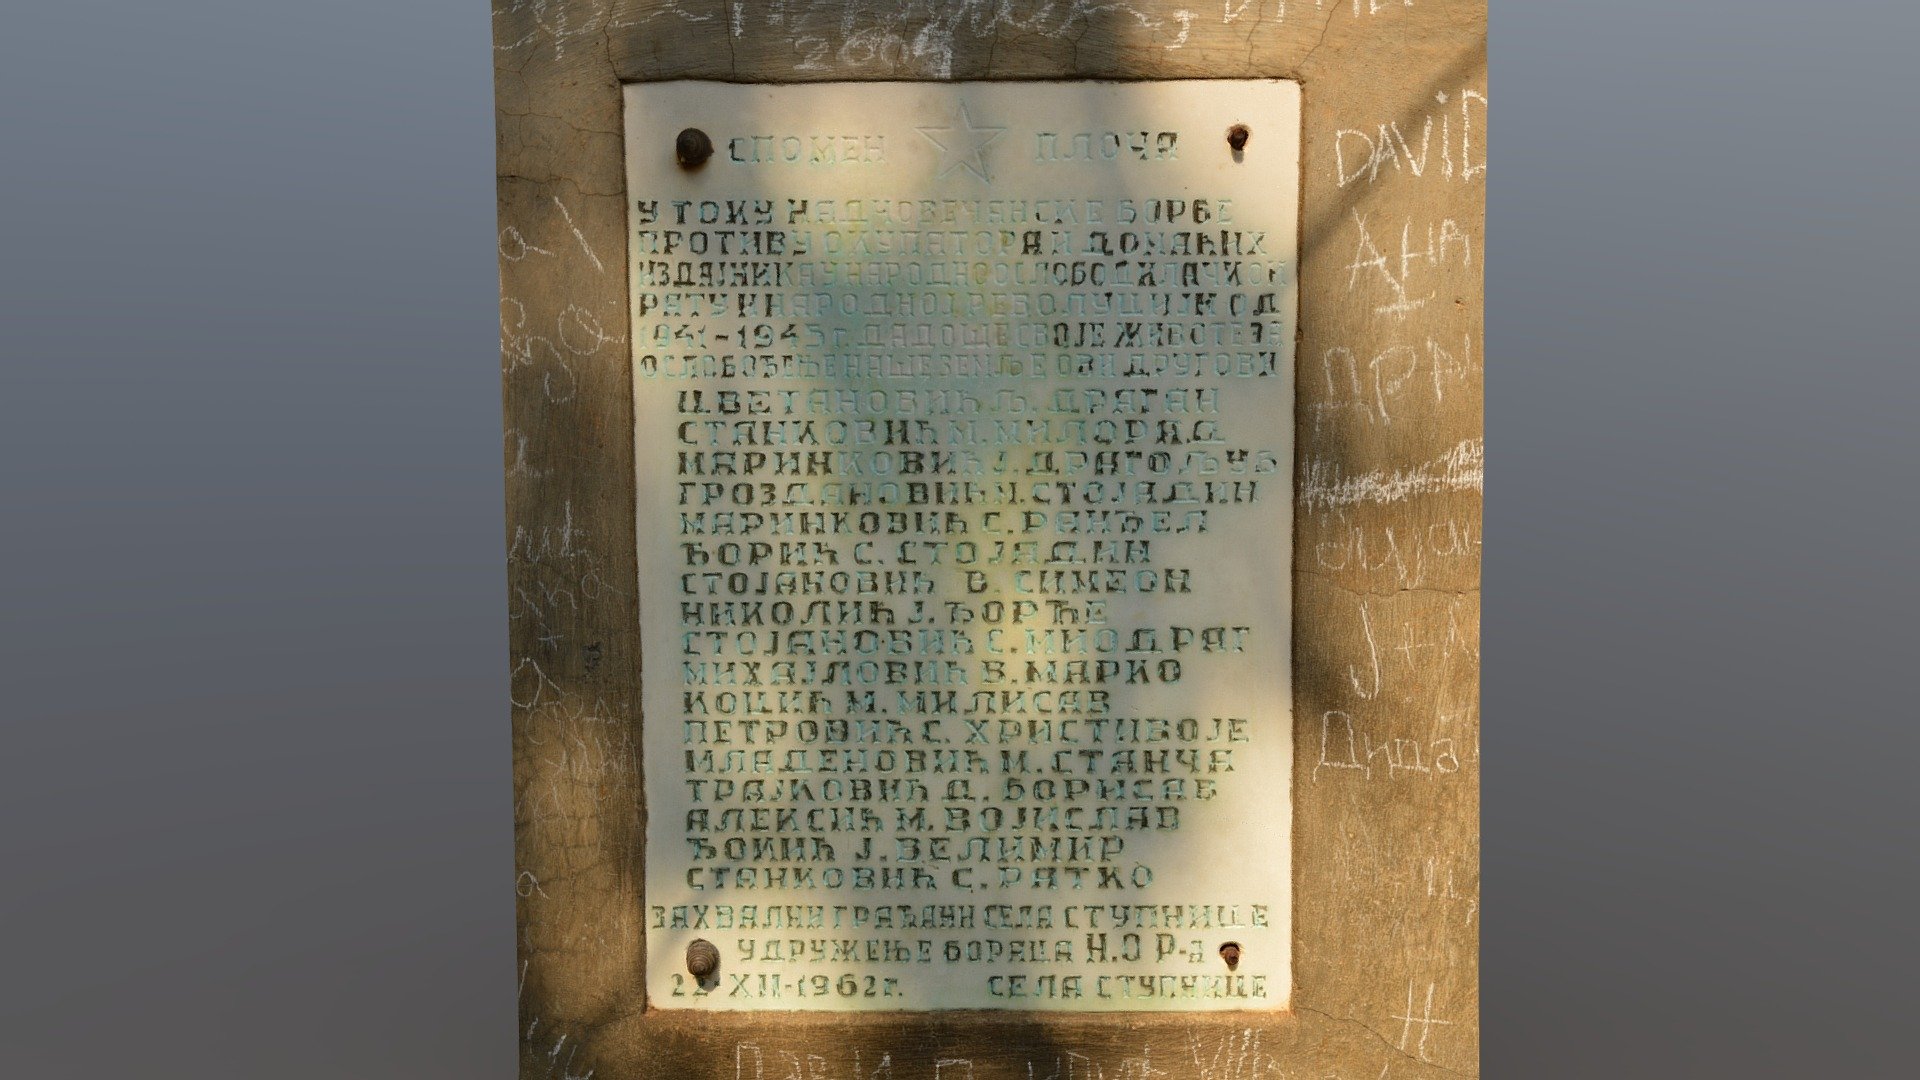 2009
СПОМЕН ПЛОЧА
У ТОКУ НАДЧОВЕЧАНСКЕ БОРБЕ
ПРОТИВ ОКУПАТОРА И ДОМАЋИХ
ИЗДАЈНИКА У НАРОДНООСЛОБОДИЛАЧКОМ
РАТУ И НАРОДНОЈ РЕВОЛУЦИЈИ ОД
1941-1945 г. ДАДОШЕ СВОЈЕ ЖИВОТЕ ЗА
ОСЛОБОЂЕЊЕ НАШЕ ЗЕМЉЕ ОВИ ДРУГОВИ
ЦВЕТАНОВИЋ Љ. ДРАГАН
СТАНКОВИЋ М. МИЛОРАД
МАРИНКОВИЋ Ј. ДРАГОЉУБ
ГРОЗДАНОВИЋ Ч. СТОЈАДИН
МАРИНКОВИЋ С. РАНЂЕЛ
ЂОРИЋ С. СТОЈАДИН
СТОЈАНОВИЋ В. СИМЕОН
НИКОЛИЋ Ј. ЂОРЂЕ
СТОЈАНОВИЋ С. МИОДРАГ
МИХАЈЛОВИЋ В. МАРКО
КОЦИЋ М. МИЛИСАВ
ПЕТРОВИЋ С. ХРИСТИВОЈЕ
МЛАДЕНОВИЋ М. СТАНЧА
ТРАЈКОВИЋ Д. БОРИСАВ
АЛЕКСИЋ М. ВОЈИСЛАВ
ЂОКИЋ Ј. ВЕЛИМИР
СТАНКОВИЋ С. РАТКО
ЗАХВАЛНИ ГРАЂАНИ СЕЛА СТУПНИЦЕ
УДРУЖЕЊЕ БОРАЦА Н.О Р-а
22-XII-1962 г. СЕЛА СТУПНИЦЕ
DAViD
АНА